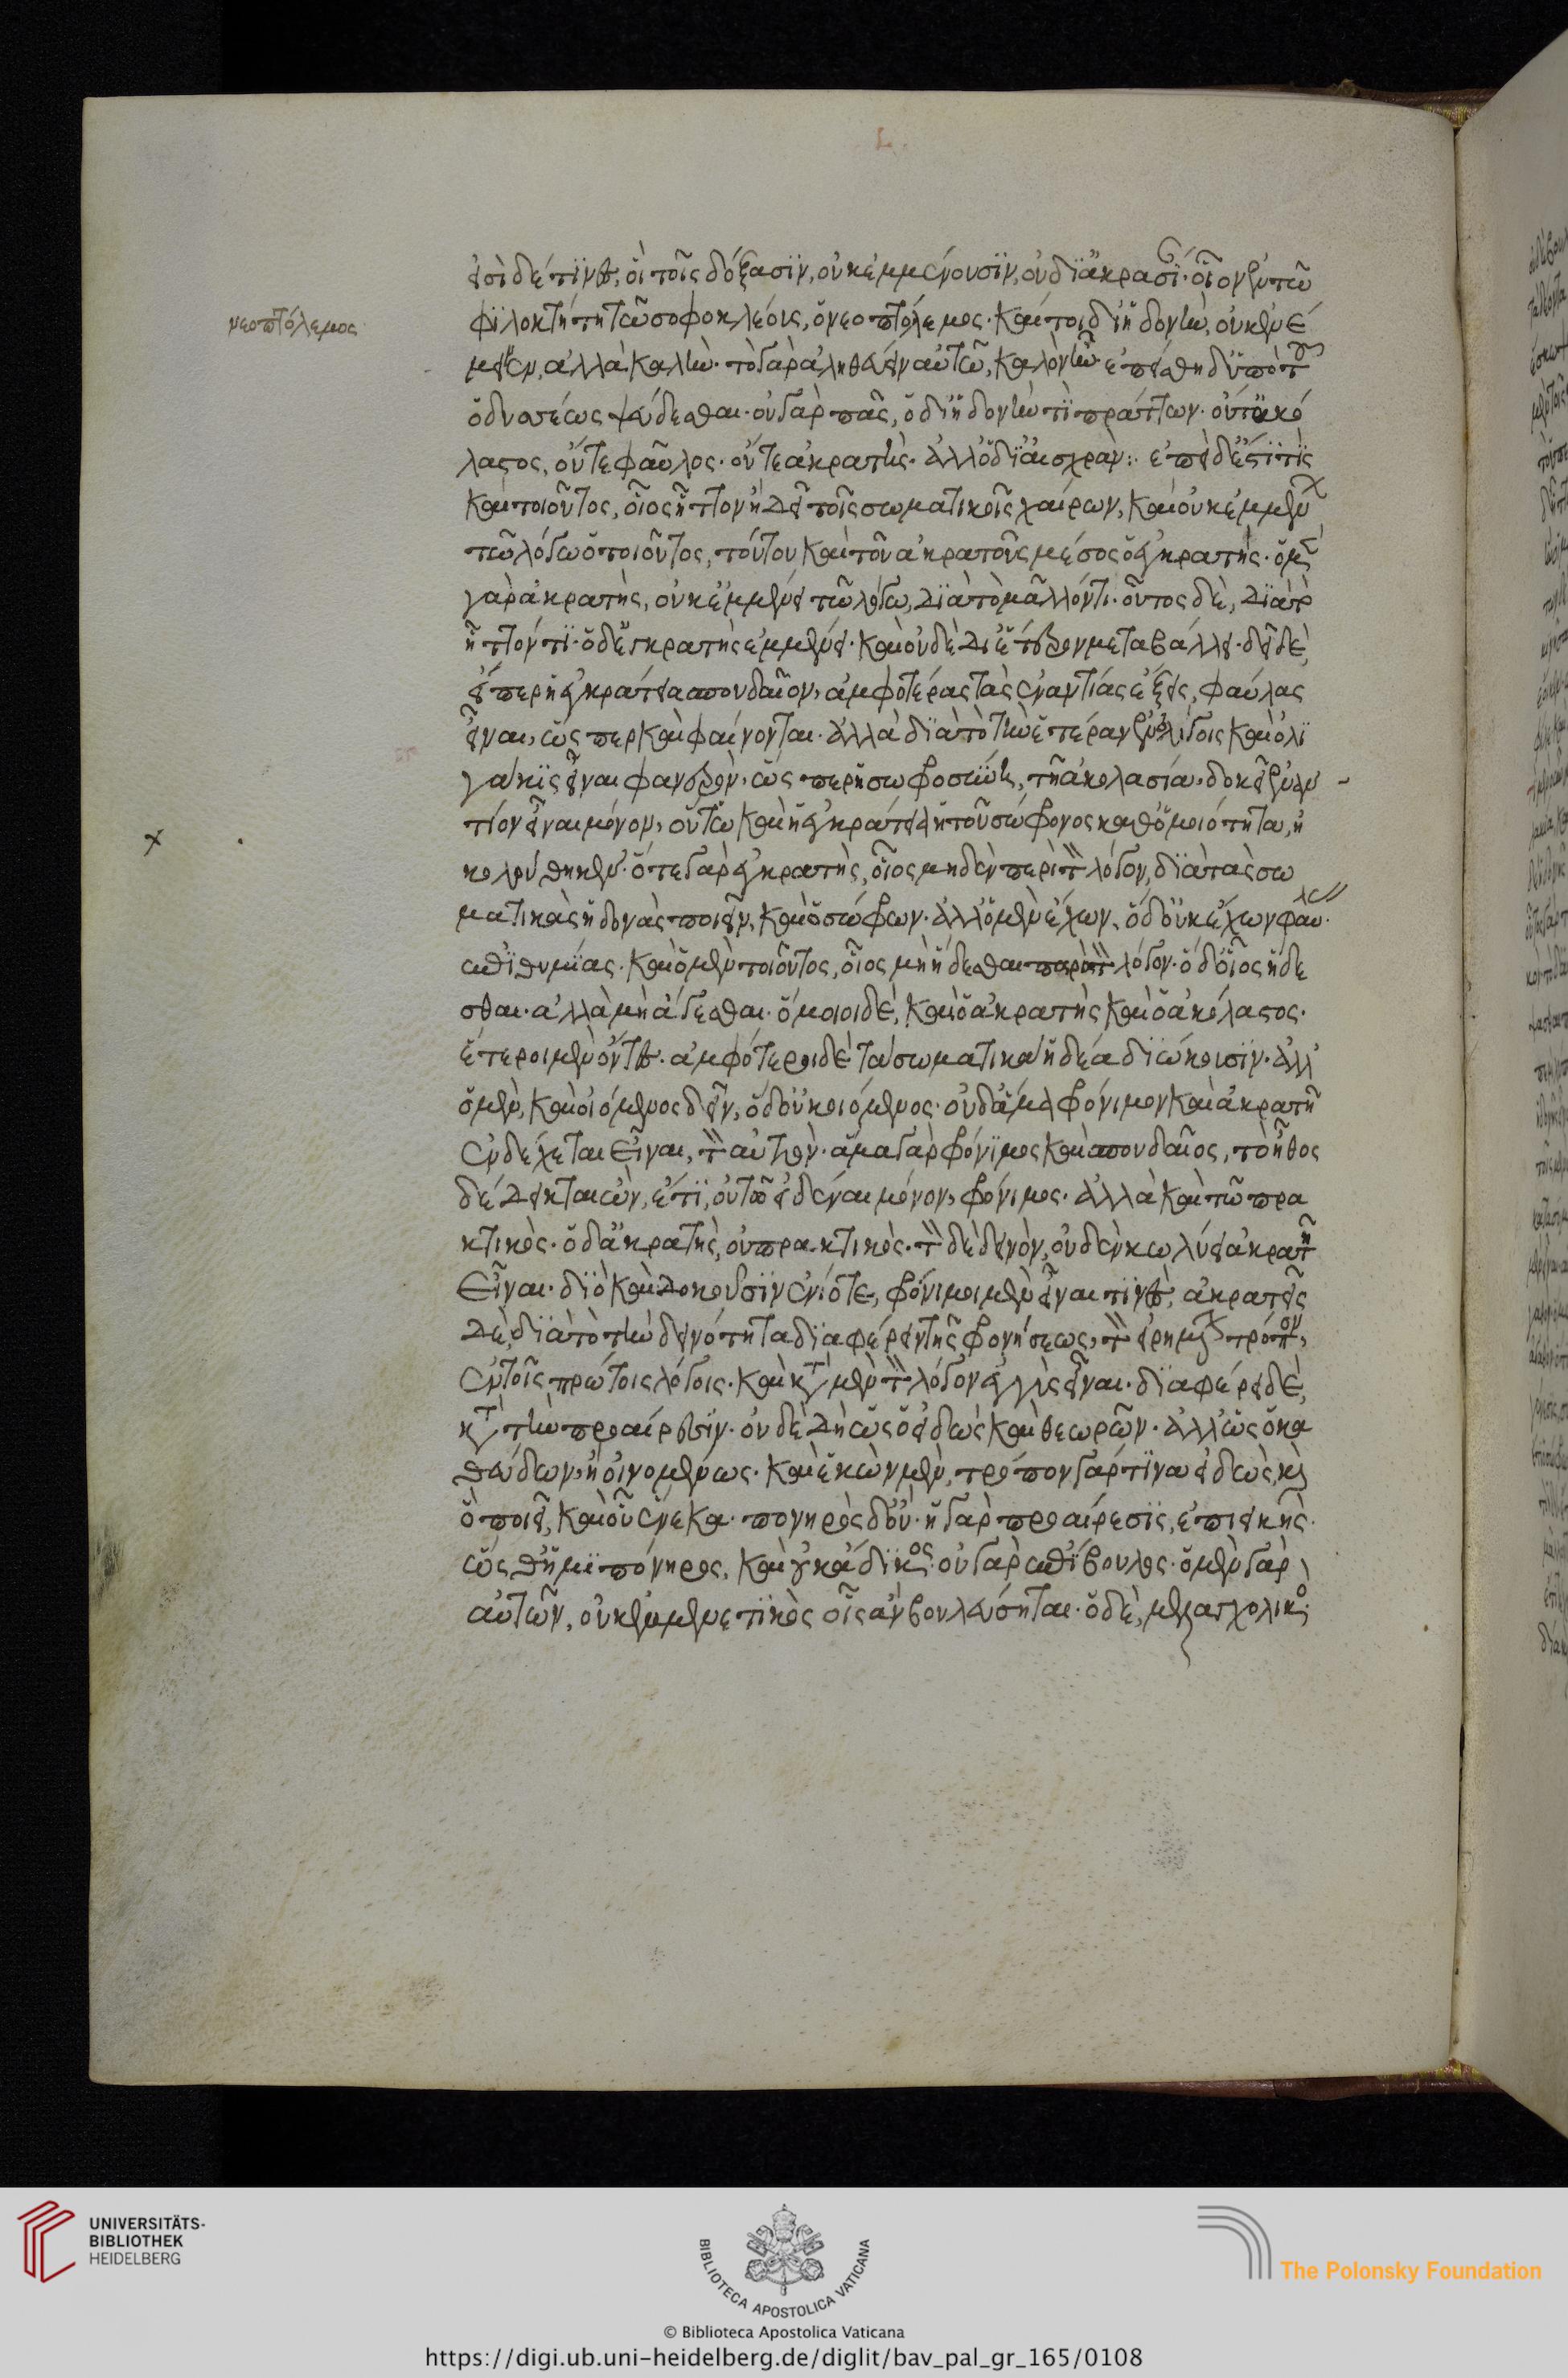 εἰσὶ δέ τινες, οἳ τοῖς δόξασιν, οὐκ ἐμμένουσιν, οὐ δι' ἀκρασίαν· οἷον ἐν τῶ
φιλοκτήτη τῶ σοφοκλέους, ὁ νεοπτόλεμος. καίτοι δι' ἡδονὴν, οὐκ ἐνέ
μεινεν, ἀλλὰ καλήν. τὸ γὰρ ἀληθεύειν αὐτῶ, καλὸν ἦν. ἐπείσθη δ' ὑπὸ τοῦ
ὀδυσσέως ψεύδεσθαι. οὐ γὰρ πᾶς, ὁ δι' ἡδονήν τι πράττων. οὔτ' ἀκό
λαστος, οὔτε φαῦλος. οὔτε ἀκρατής. ἀλλ' ὁ δι' αἰσχράν: ἐπεὶ δ' ἔστί τις
καὶ τοιοῦτος, οἷος ἧττον ἢ δεῖ τοῖς σωματικοῖς χαίρων, καὶ οὐκ ἐμμένων
τῶ λόγω ὁ τοιοῦτος, τούτου καὶ τοῦ ἀκρατοῦς μέσος ὁ ἐγκρατής. ὁ μὲν
γὰρ ἀκρατὴς, οὐκ ἐμμένει τῶ λόγω, διὰ τὸ μᾶλλόν τι. οὗτος δὲ, διὰ τὸ
ἧττόν τι. ὁ δ' ἐγκρατὴς ἐμμένει. καὶ οὐδὲ δι' ἕτερον μεταβάλλει. δεῖ δὲ,
εἴπερ ἡ ἐγκράτεια σπουδαῖον, ἀμφοτέρας τὰς ἐναντίας ἕξεις, φαύλας
εἶναι, ὥς περ καὶ φαίνονται. ἀλλὰ διὰ τὸ τὴν ἑτέραν ἐν ὀλίγοις καὶ ὀλι
γάκις εἶναι φανερὸν, ὥς περ ἡ σωφροσύνη, τῆ ἀκολασία, δοκεῖ ἐναν
τίον εἶναι μόνον, οὕτω καὶ ἡ ἐγκράτεια ἡ τοῦ σώφρονος καθ' ὁμοιότητα, ἠ
κολούθηκεν. ὅ τε γὰρ ἐγκρατὴς, οἷος μηδὲν περὶ τὸν λόγον, διὰ τὰς σω
ματικὰς ἡδονὰς ποιεῖν, καὶ ὁ σώφρων. ἀλλ' ὁ μὲν ἔχων, ὁ δ' οὐκ ἔχων φαύλας
ἐπιθυμίας. καὶ ὁ μὲν τοιοῦτος, οἷος μὴ ἥδεσθαι παρὰ τὸν λόγον. ὁ δ' οἷος ἥδε
σθαι. ἀλλὰ μὴ ἄγεσθαι. ὅμοιοι δὲ, καὶ ὁ ἀκρατὴς καὶ ὁ ἀκόλαστος.
ἕτεροι μὲν ὄντες. ἀμφότεροι δὲ τὰ σωματικὰ ἡδέα διώκουσιν. ἀλλ'
ὁ μὲν, καὶ οἰόμενος δεῖν, ὁ δ' οὐκ οἰόμενος. οὐδ' ἅμα φρόνιμον καὶ ἀκρατῆ
ἐνδέχεται εἶναι, τὸν αὐτόν. ἅμα γὰρ φρόνιμος καὶ σπουδαῖος, τὸ ἦθος
δέδεικται ὢν, ἔτι, οὐ τῶ εἰδέναι μόνον, φρόνιμος. ἀλλὰ καὶ τῶ πρα
κτικός. ὁ δ' ἀκρατὴς, οὐ πρακτικός. τὸν δὲ δεινὸν, οὐδὲν κωλύει ἀκρατῆ
εἶναι. διὸ καὶ δοκοῦσιν ἐνίοτε, φρόνιμοι μὲν εἶναι τινὲς, ἀκρατεῖς
δὲ, διὰ τὸ τὴν δεινότητα διαφέρειν τῆς φρονήσεως, τὸν εἰρημένον τρόπον,
ἐν τοῖς πρώτοις λόγοις. καὶ κατὰ μὲν τὸν λόγον ἐγγὺς εἶναι. διαφέρει δὲ,
κατὰ τὴν προαίρεσιν. οὐδὲ δὴ ὡς ὁ εἰδὼς καὶ θεωρῶν. ἀλλ' ὡς ὁ κα
θεύδων, ἢ οἰνωμένος. καὶ ἑκὼν μὲν, τρόπον γάρ τινα εἰδὼς, καὶ
ὃ ποιεῖ, καὶ οὗ ἕνεκα. πονηρὸς δ' οὔ. ἡ γὰρ προαίρεσις, ἐπιεικής.
ὥσθ' ἡμιπόνηρος, καὶ οὐκ ἄδικος. οὐ γὰρ ἐπίβουλος. ὁ μὲν γὰρ
αὐτῶν, οὐκ ἐμμενετικὸς οἷς ἂν βουλεύσηται. ὁ δὲ, μελαγχολικός.
νεοπτόλεμος
UNIVERSITÄTS-
BIBLIOTHEK
HEIDELBERG
BIBLIOTECA APOSTOLICA VATICANA
© Biblioteca Apostolica Vaticana
The Polonsky Foundation
https://digi.ub.uni-heidelberg.de/diglit/bav_pal_gr_165/0108